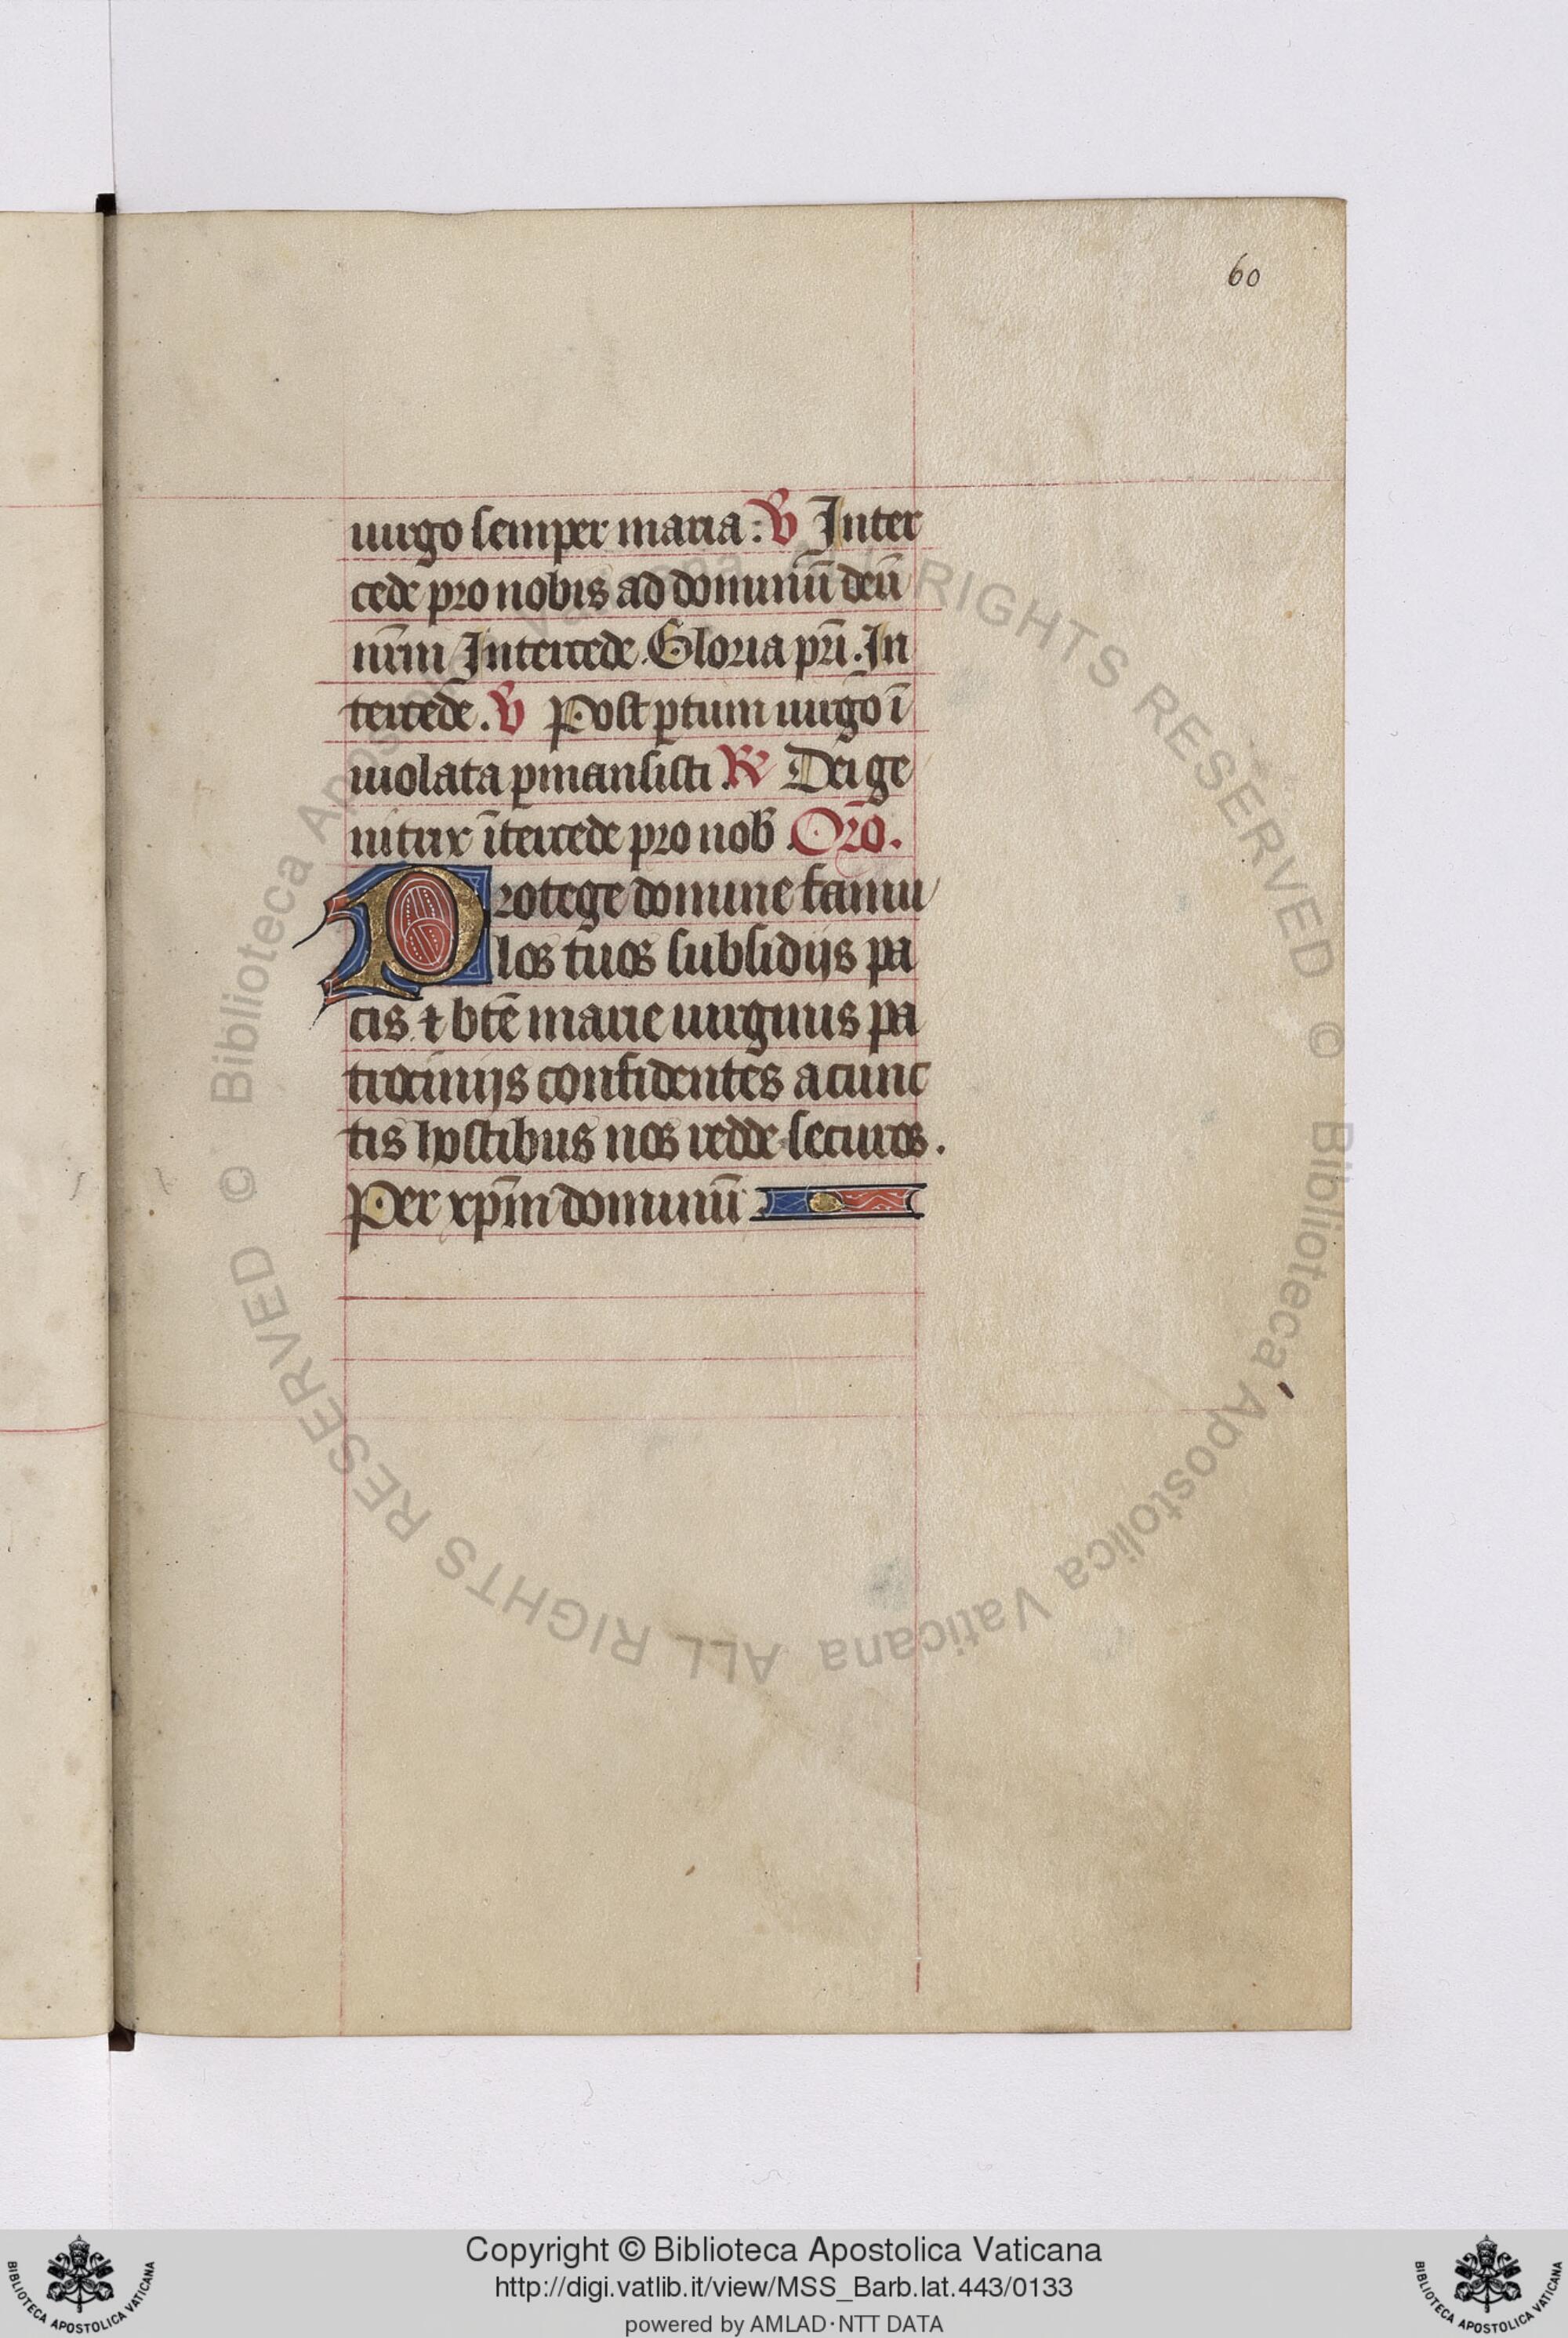 60
uirgo semper maria: ℣ Inter
cede pro nobis ad dominū deū
nr̄m Intercede. Gloria pr̄i. In
tercede. ℣ Post ꝑtum uirgo ī
uiolata ꝑmansisti ℟ Dei ge
nitrix ītercede pro nob̄ Or̄o.
Protege domine famu
los tuos subsidijs pa
cis ⁊ btē marie uirginis pa
trocinijs confidentes a cunc
tis hostibus nos redde securos.
Per xp̄m dominū
© Biblioteca Apostolica Vaticana ALL RIGHTS RESERVED © Biblioteca Apostolica Vaticana ALL RIGHTS RESERVED
Copyright © Biblioteca Apostolica Vaticana
http://digi.vatlib.it/view/MSS_Barb.lat.443/0133
powered by AMLAD·NTT DATA
BIBLIOTECA APOSTOLICA VATICANA
BIBLIOTECA APOSTOLICA VATICANA